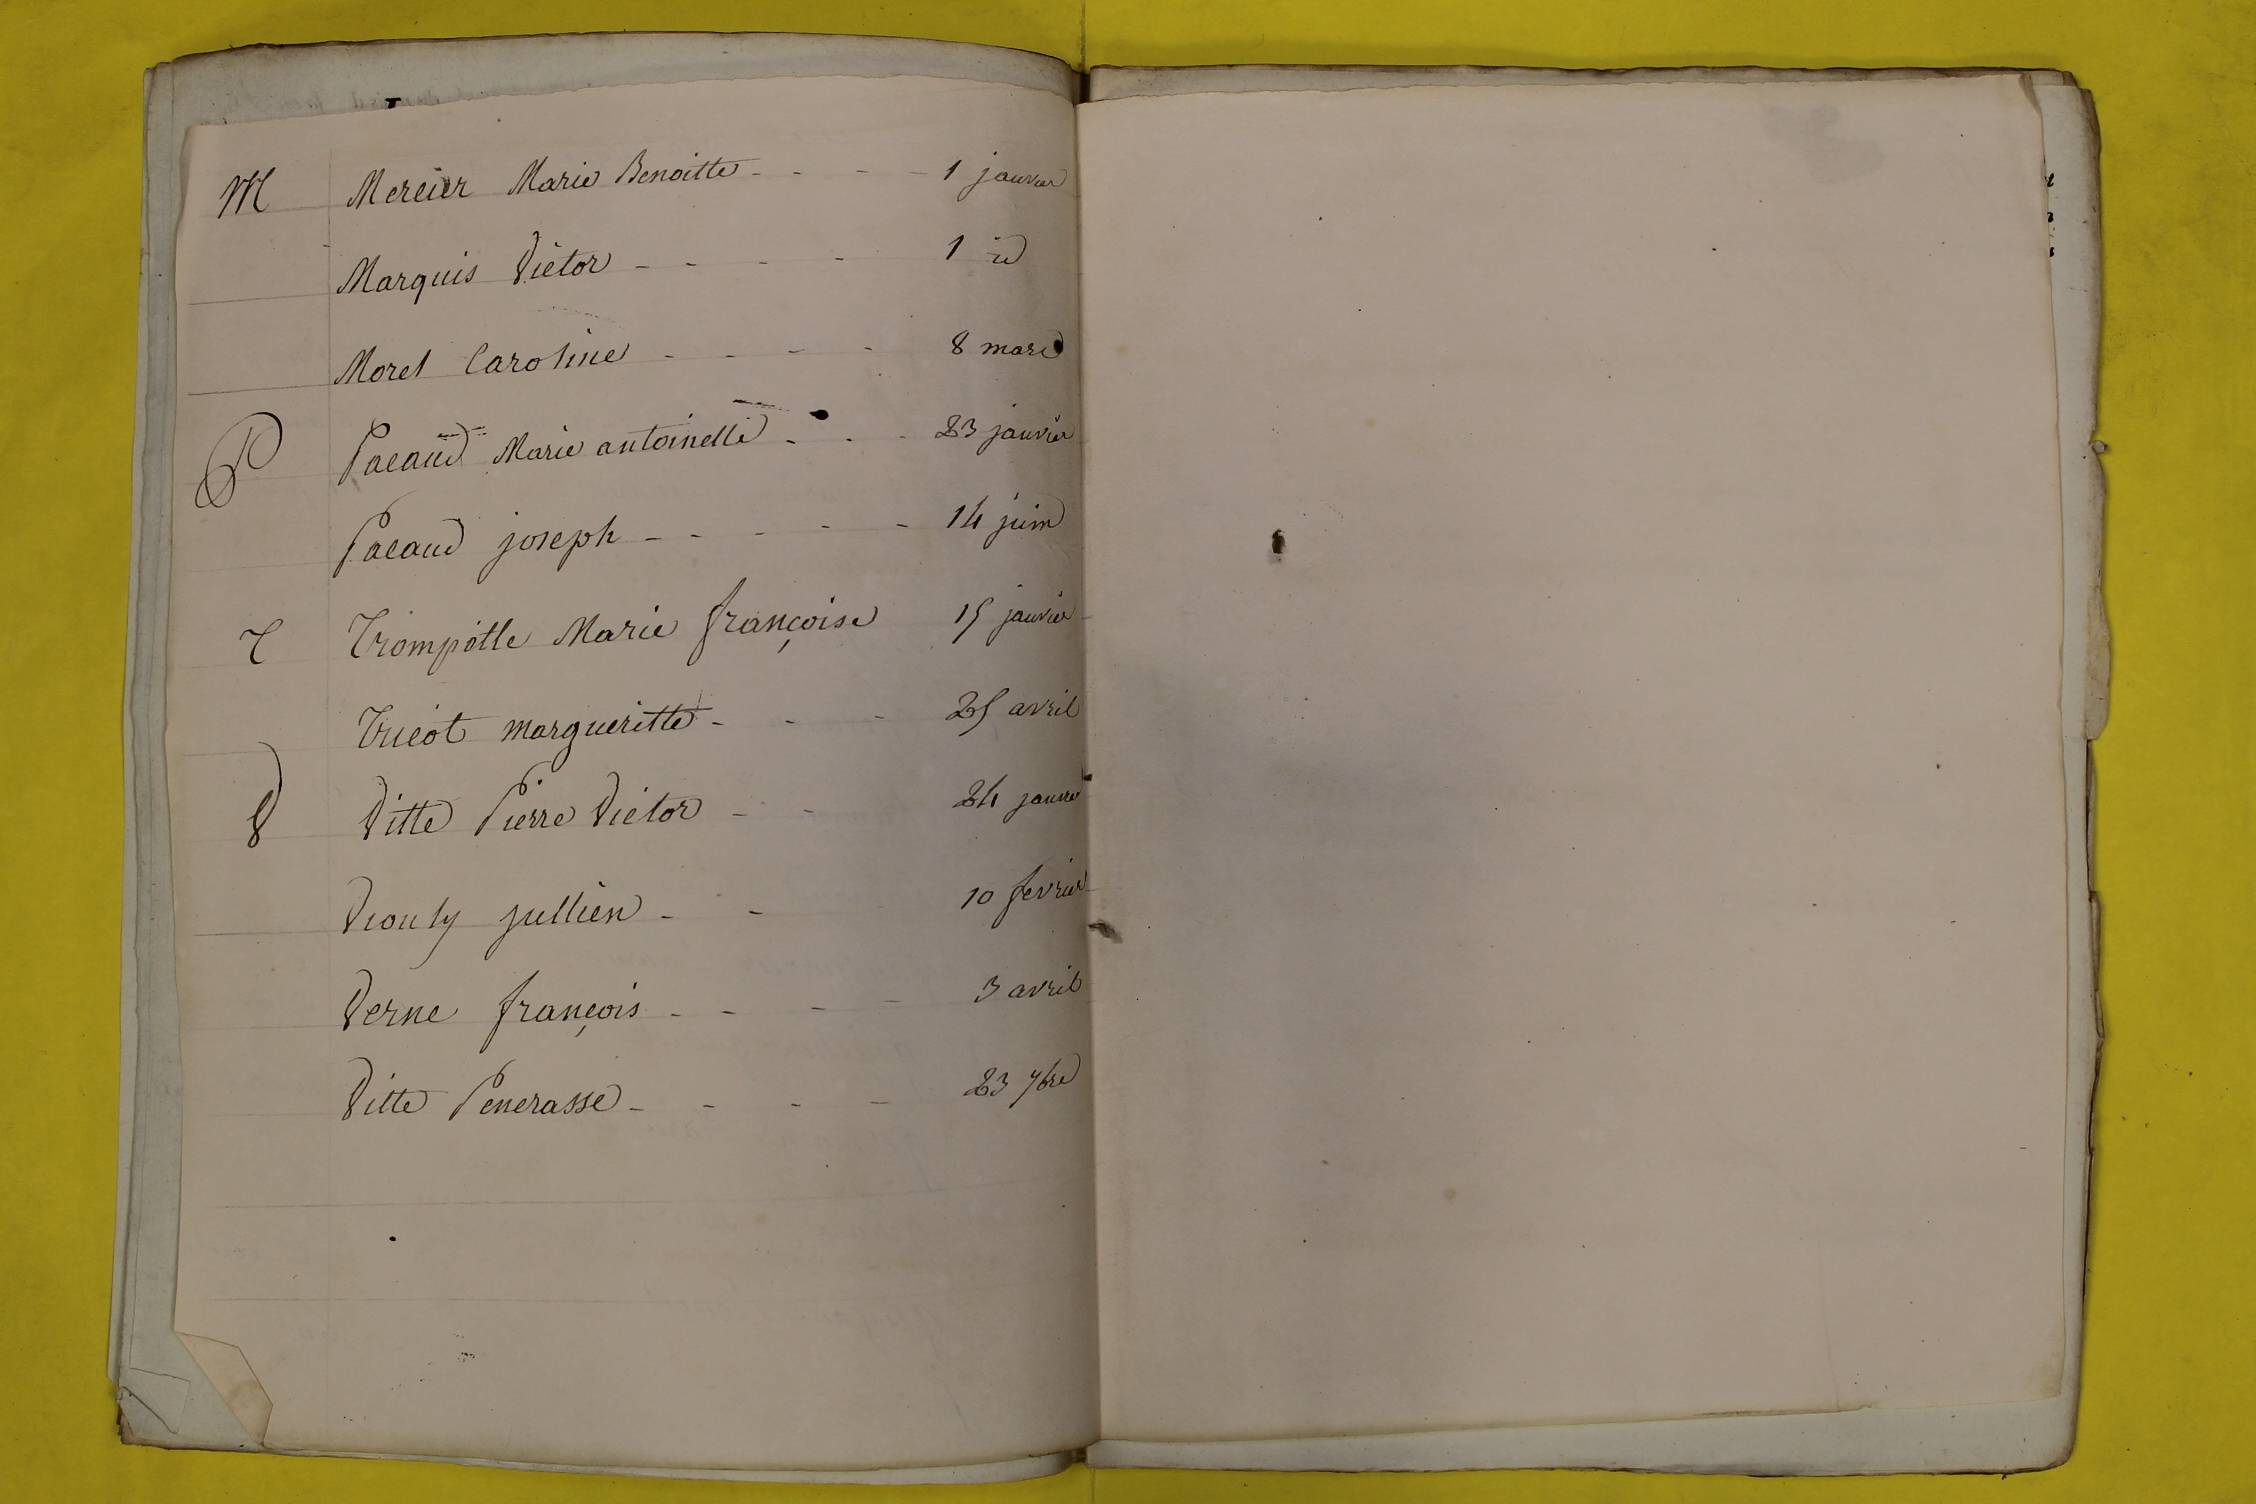 M Mercier Marie Benoitte - - - - 1 janvier
Marquis Victor - - - - 1 id
Morel Caroline - - - - 8 mars
P Pacaud Marie antoinette - - - 23 janvier
Pacaud joseph - - - - - 14 juin
T Trompette Marie françoise 15 janvier
Tricot margueritte - - - 25 avril
V Vitte Pierre Victor - - 24 janvier
Viouly jullien - - 10 fevrier
Verne françois - - - - 3 avril
Vitte Penerasse - - - - 23 7bre